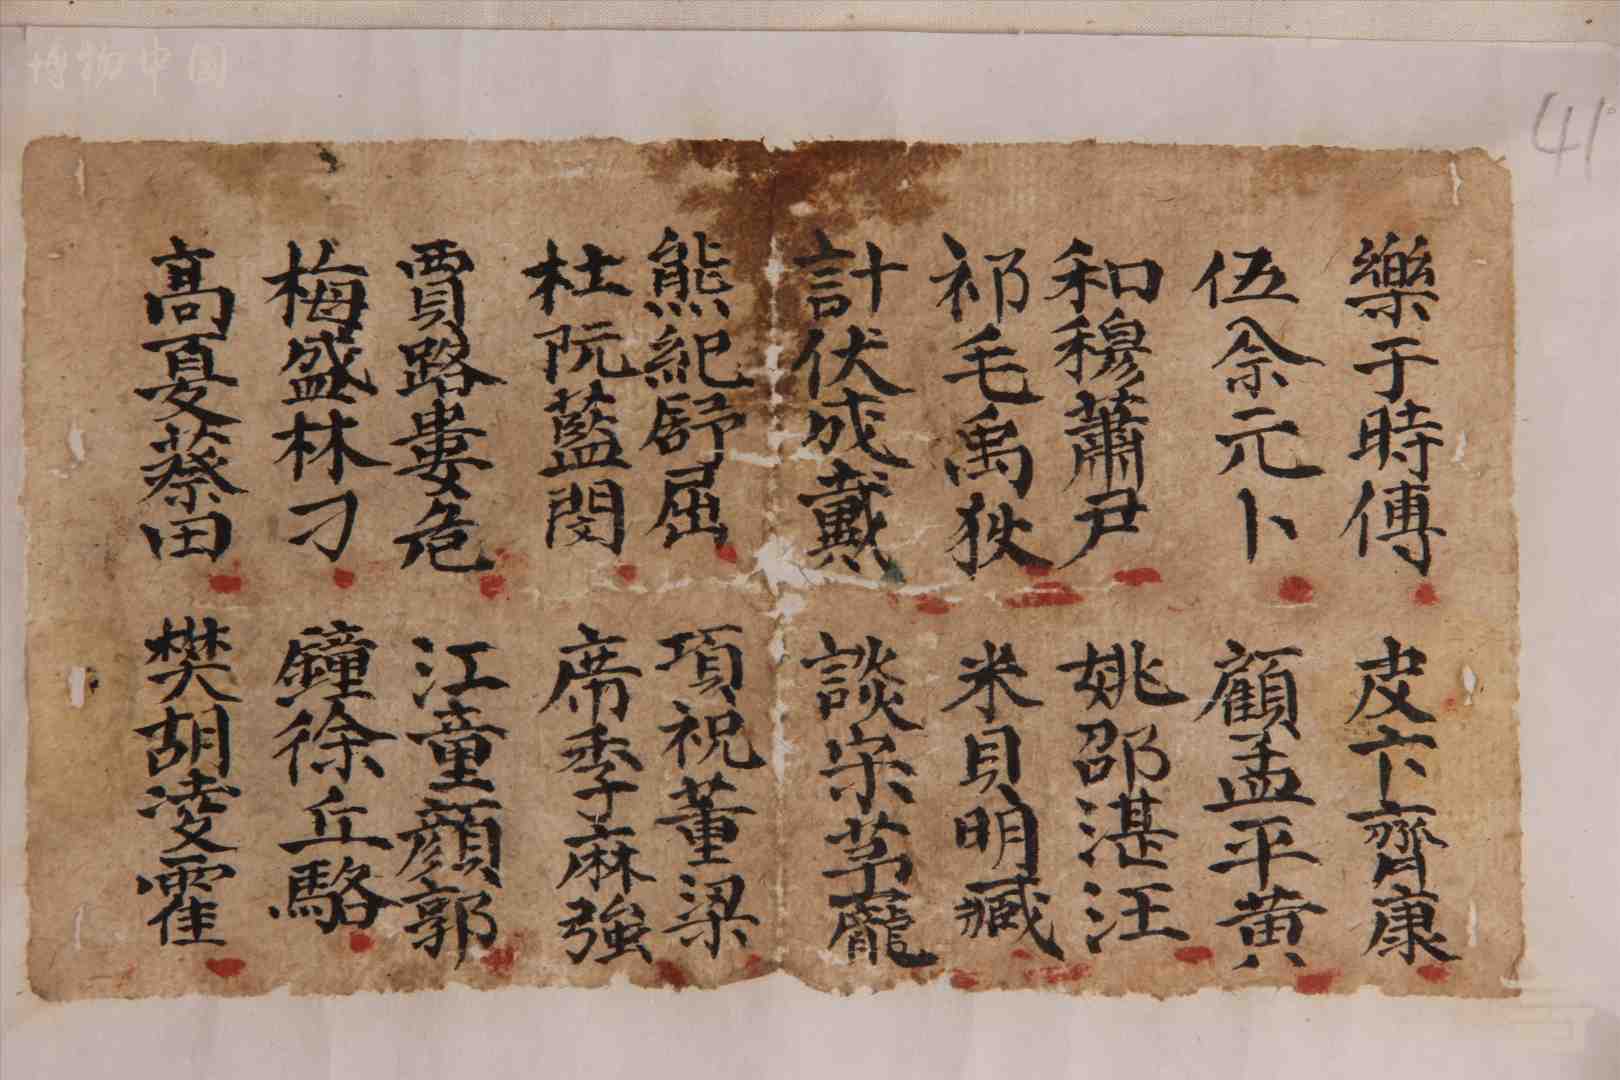 博物中国
41
樂于時傅 皮卞齊康
伍余元卜 顧孟平黄
和穆蕭尹 姚邵湛汪
祁毛禹狄 米貝明臧
計伏成戴 談宋茅龐
熊紀舒屈 項祝董梁
杜阮藍閔 席季麻強
賈路婁危 江童顔郭
梅盛林刁 鐘徐丘駱
髙夏蔡田 樊胡凌霍